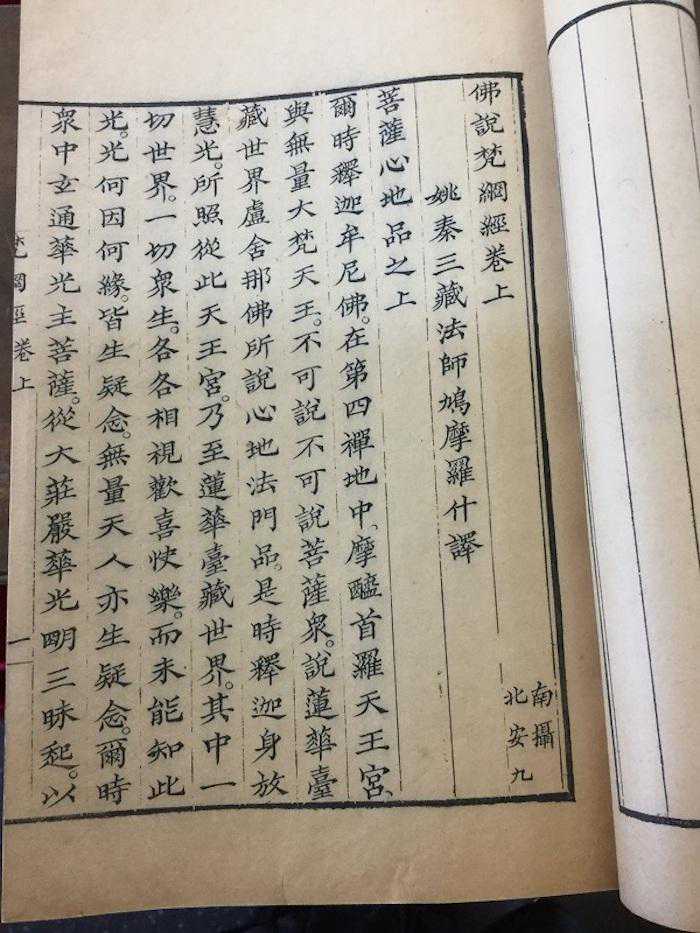 佛說梵網經卷上
南攝
北安九
姚秦三藏法師鳩摩羅什譯
菩薩心地品之上
爾時釋迦牟尼佛。在第四禪地中、摩醯首羅天王宮、
與無量大梵天王。不可說不可說菩薩衆。說蓮華臺
藏世界盧舍那佛所說心地法門品。是時釋迦身放
慧光。所照從此天王宮。乃至蓮華臺藏世界。其中一
切世界。一切衆生。各各相視歡喜快樂。而未能知此
光。光何因何緣。皆生疑念。無量天人亦生疑念。爾時
衆中玄通華光主菩薩。從大莊嚴華光明三昧起。以
梵網經卷上
一